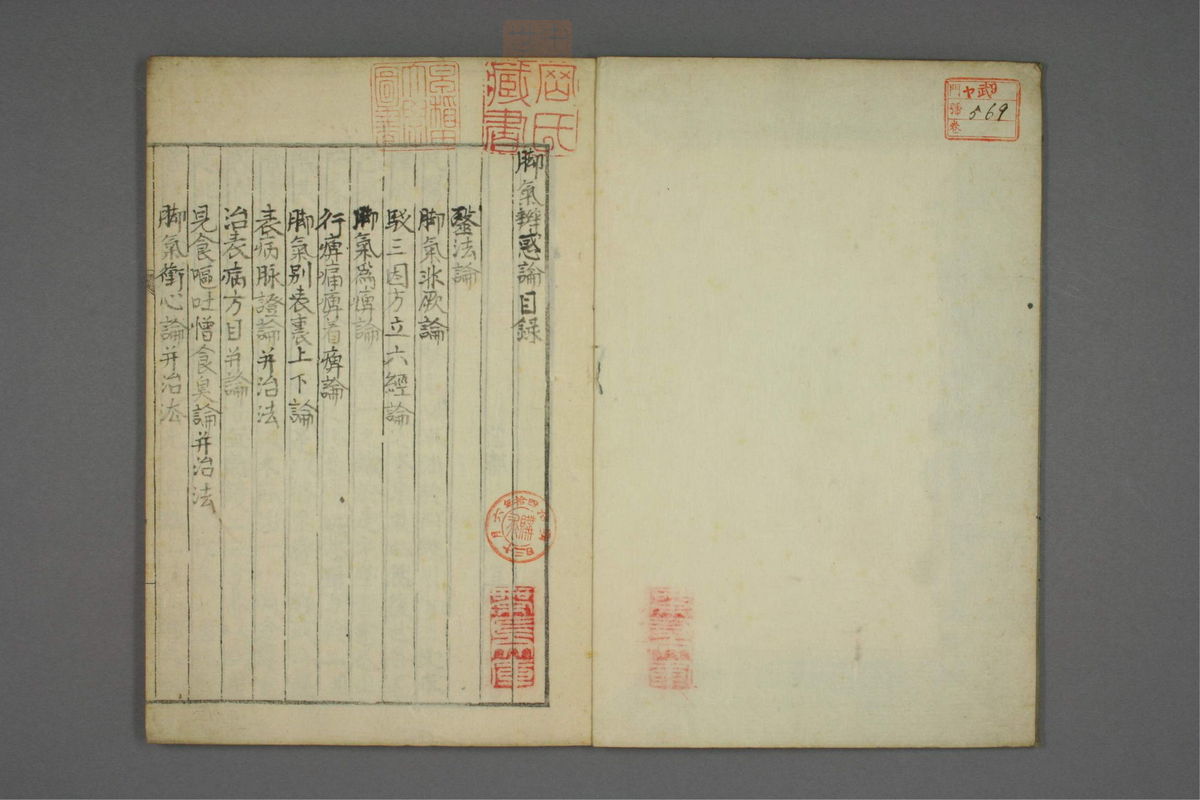 門 ヤ
號 569
卷
脚氣辨惑論目録
毉法論
脚氣非厥論
駁三因方立六經論
脚氣爲痺論
行痺痛痺着痺論
脚氣別表裏上下論
表病脉證論并治法
治表病方目并論
見食嘔吐憎食臭論并治法
脚氣衝心論并治法
藏書
圖書